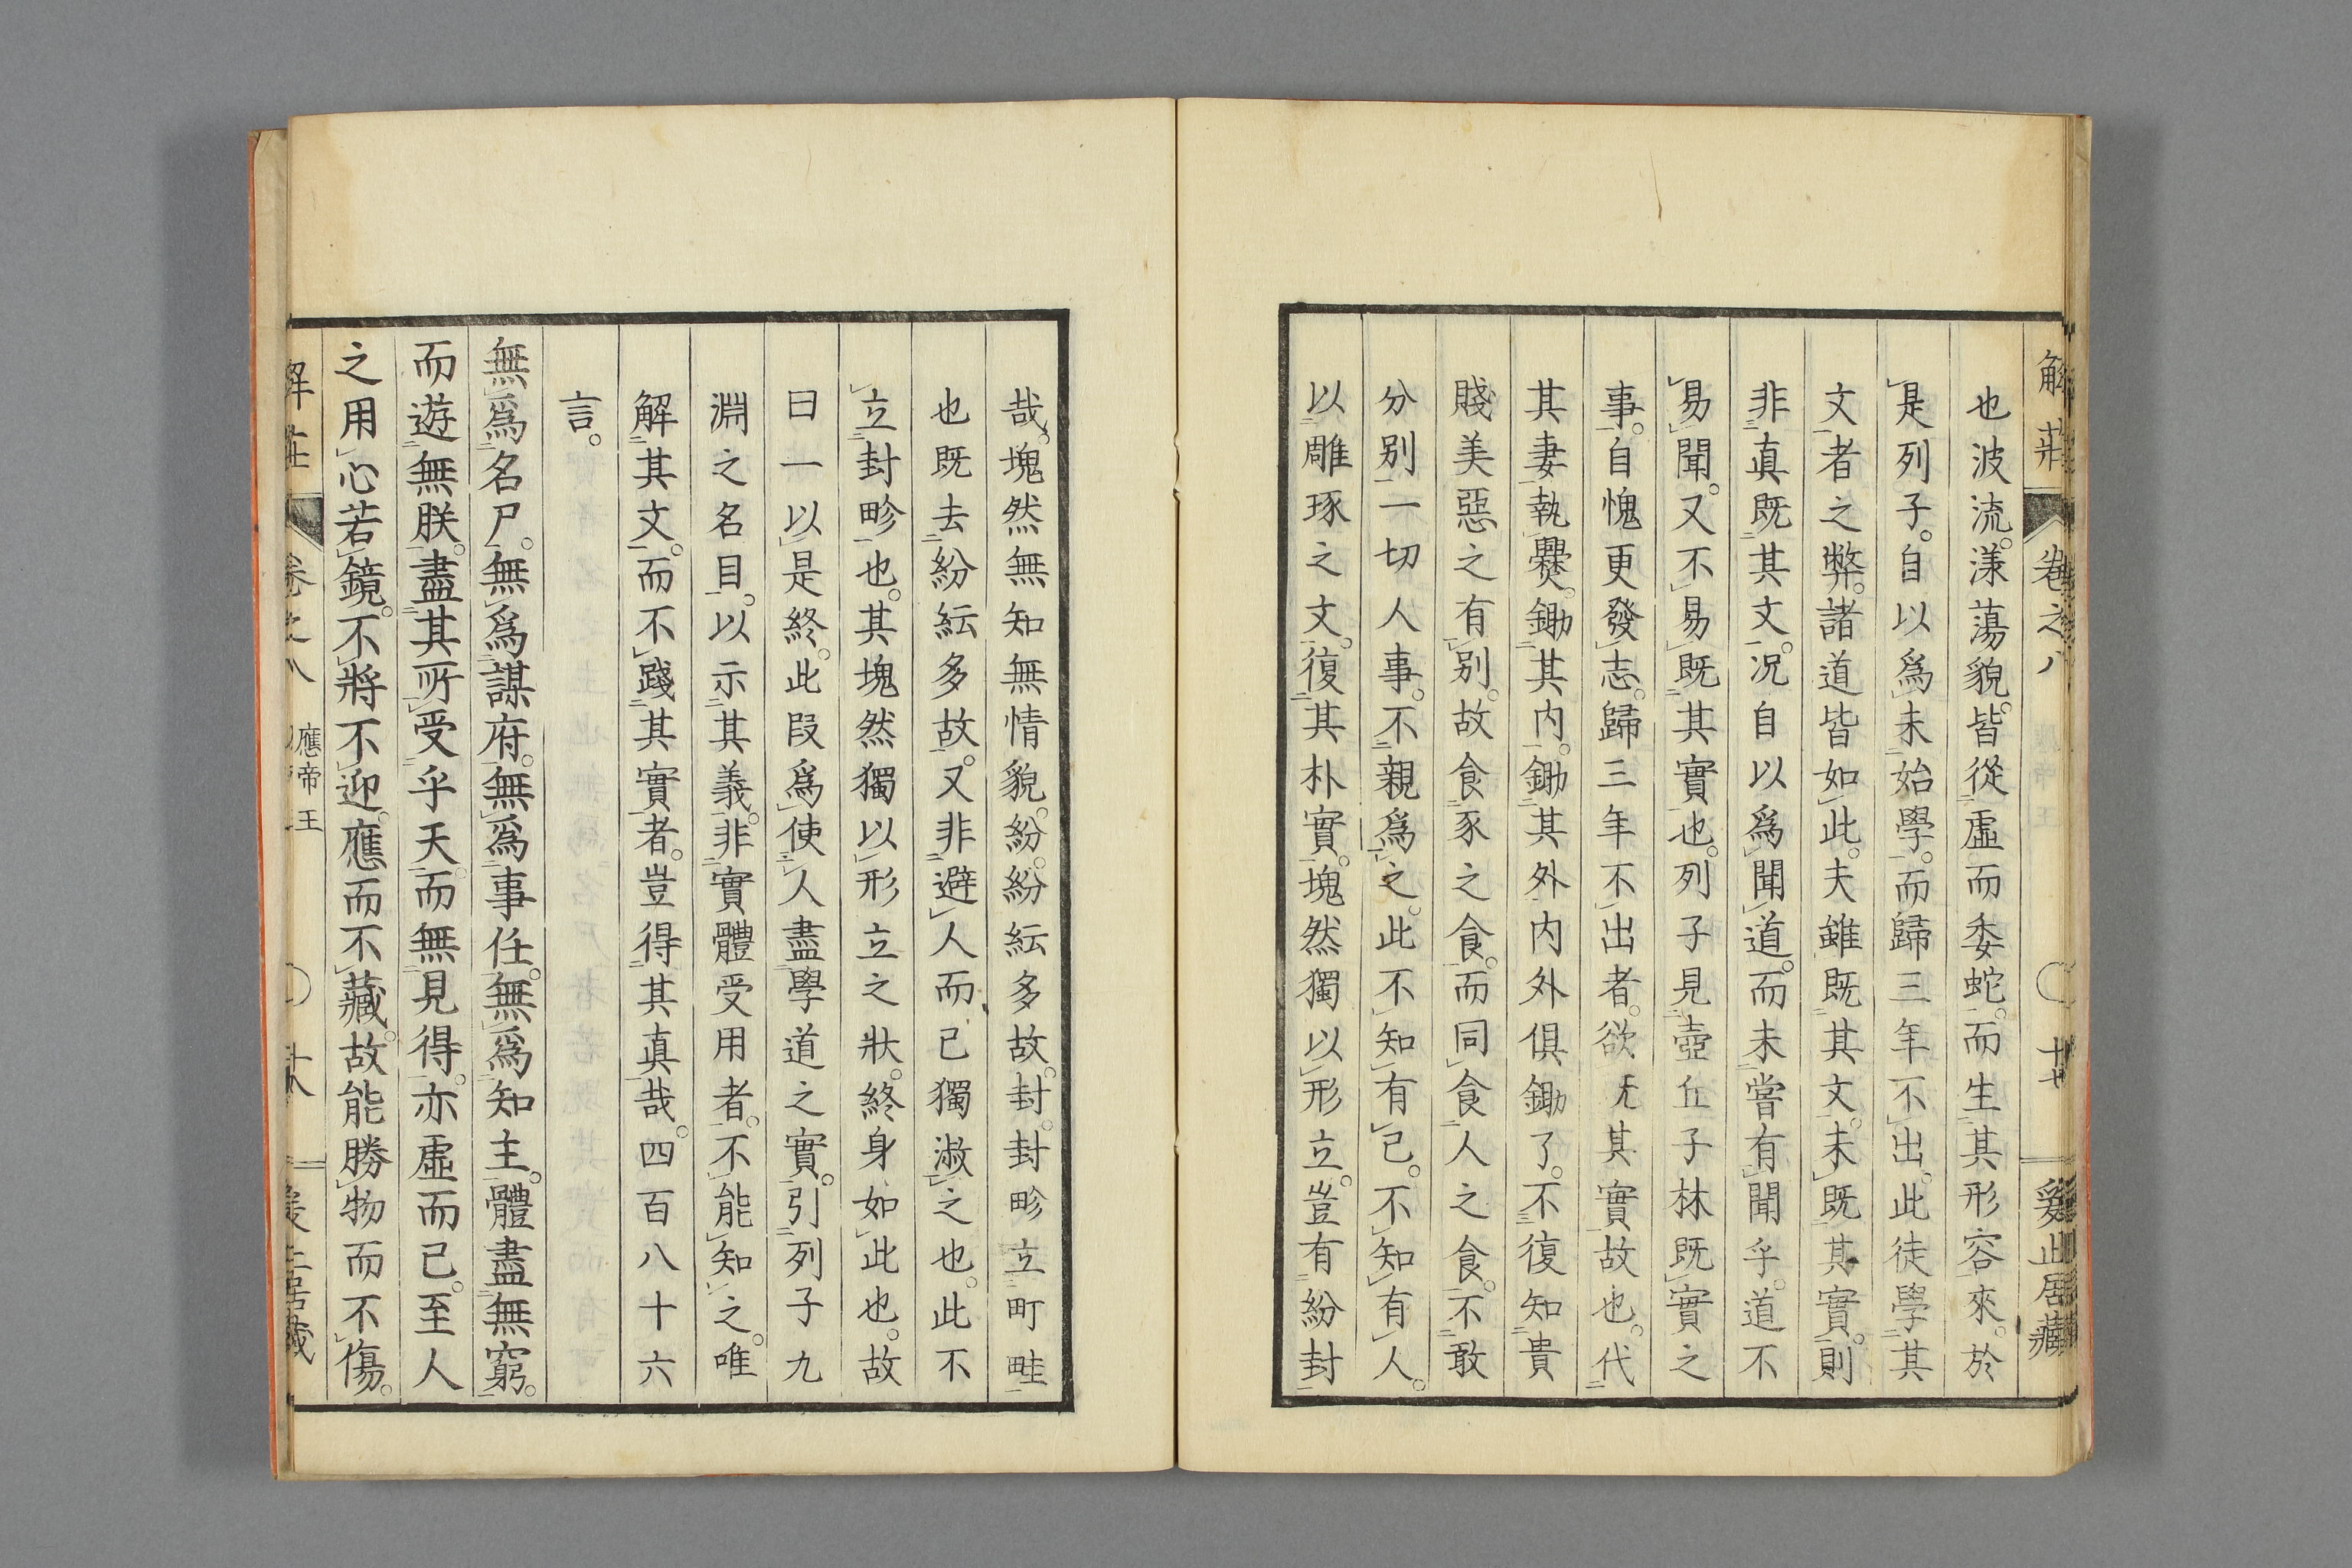 解莊 卷之八 十七 爰止居藏
也波流。漾蕩貌。皆從虛而委蛇。而生其形容來。於
是列子。自以爲未始學。而歸三年不出。此徒學其
文者之弊。諸道皆如此。夫雖既其文。未既其實。則
非真既其文。况自以爲聞道。而未嘗有聞乎。道不
易聞。又不易既其實也。列子見壺丘子林既實之
事。自愧更發志。歸三年不出者。欲旡其實故也。代
其妻執爨。鋤其内。鋤其外内外俱鋤了。不復知貴
賤美惡之有別。故食豕之食。而同食人之食。不敢
分別一切人事。不親爲之。此不知有己。不知有人。
以雕琢之文。復其朴實。塊然獨以形立。豈有紛封
哉。塊然無知無情貌。紛。紛紜多故。封。封畛立町畦
也既去紛紜多故。又非避人而已獨淑之也。此不
立封畛也。其塊然獨以形立之狀。終身如此也。故
曰一以是終。此段爲使人盡學道之實。引列子九
淵之名目。以示其義。非實體受用者。不能知之。唯
解其文。而不踐其實者。豈得其真哉。四百八十六
言。
無爲名尸。無爲謀府。無爲事任。無爲知主。體盡無窮。
而遊無朕。盡其所受乎天。而無見得。亦虛而已。至人
之用心若鏡。不將不迎。應而不藏。故能勝物而不傷。
解莊 卷之八 應帝王 十八